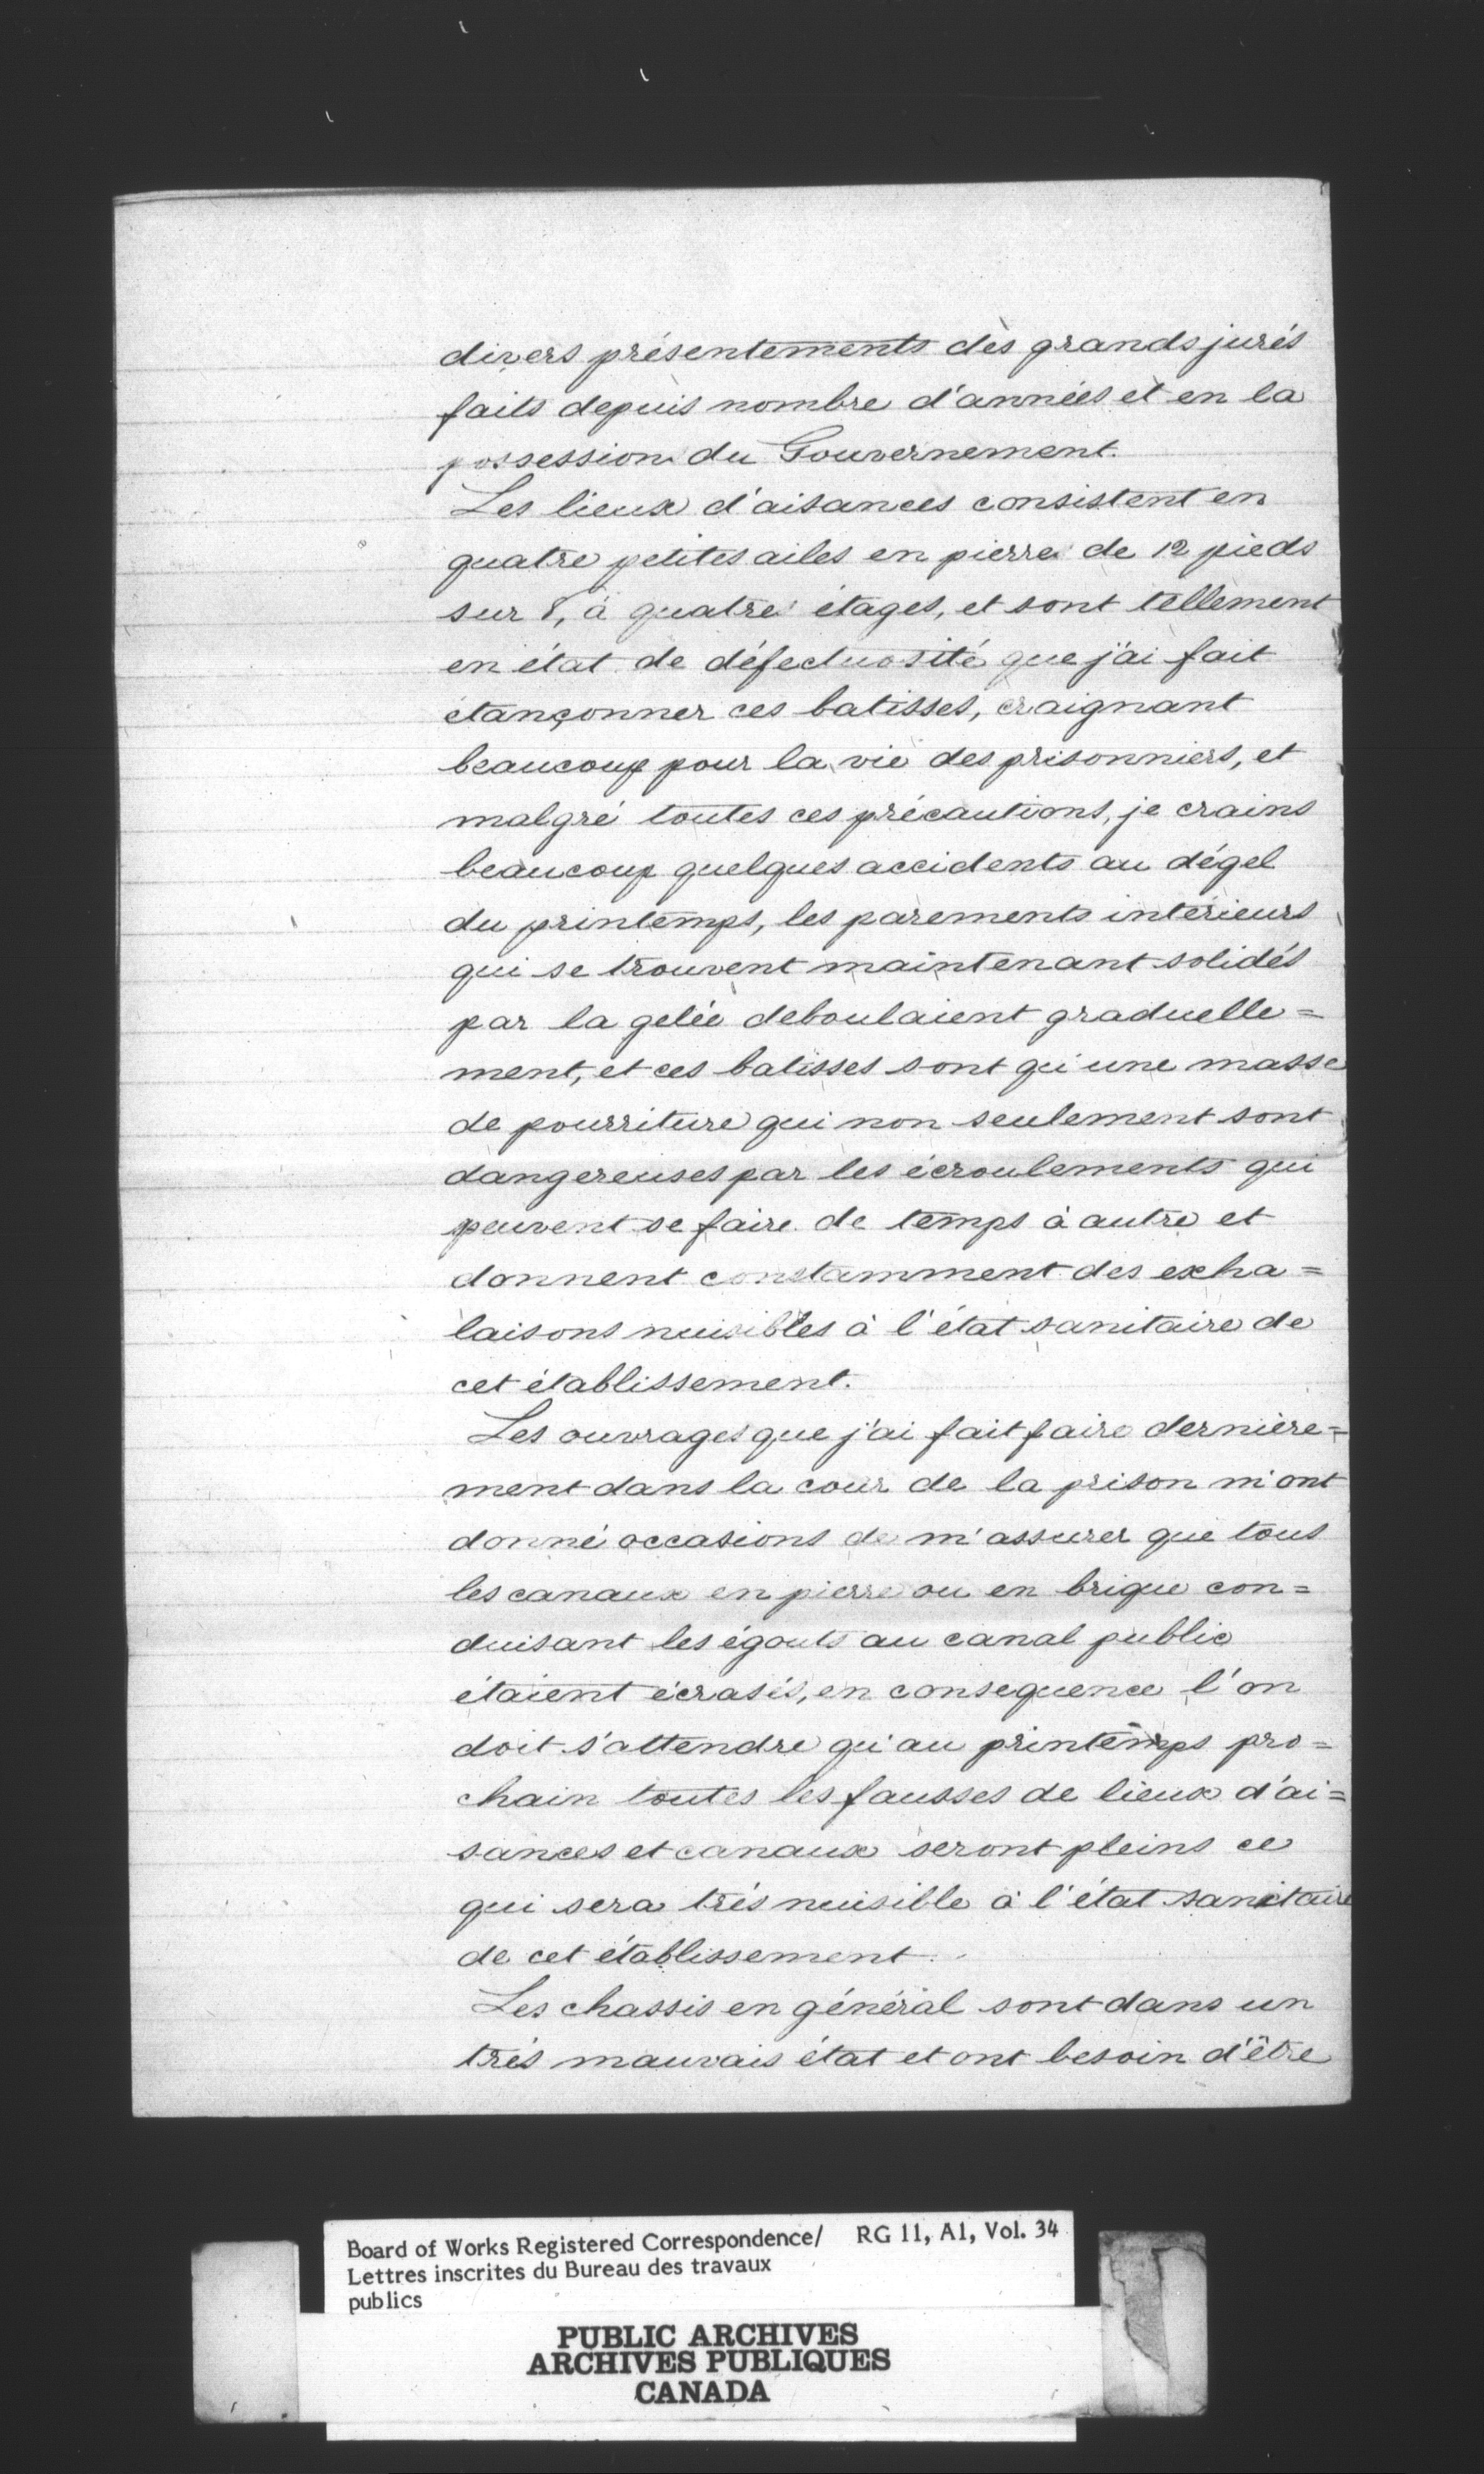 divers présentements des grands jurés
faits depuis nombre d'années et en la
possession du Gouvernement.
Les lieux d'aisances consistent en
quatre petites ailes en pierre de 12 pieds
sur 8, à quatre étages, et sont tellement
en état de défectuosité que j'ai fait
étançonner ces batisses, craignant
beaucoup pour la vie des prisonniers, et
malgré toutes ces précautions, je crains
beaucoup quelques accidents au dégel
du printemps, les parements intérieurs
qui se trouvent maintenant solidés
par la gelée deboulaient graduelle=
ment, et ces batisses sont qu'une masse
de pourriture qui non seulement sont
dangereuses par les écroulements qui
peuvent se faire de temps à autre et
donnent constamment des exha=
laisons nuisibles à l'état sanitaire de
cet établissement.
Les ouvrages que j'ai fait faire dernière=
ment dans la cour de la prison m'ont
donné occasions de m'assurer que tous
les canaux en pierre ou en brique con=
duisant les égouts au canal public
étaient écrasés, en consequence l'on
doit s'attendre qu'au printemps pro=
chain toutes les fausses de lieux d'ai=
sances et canaux seront pleins ce
qui sera trés nuisible à l'état sanitaire
de cet établissement.
Les chassis en général sont dans un
trés mauvais état et ont besoin d'être
Board of Works Registered Correspondence/ RG 11, A1, Vol. 34
Lettres inscrites du Bureau des travaux
publics
PUBLIC ARCHIVES
ARCHIVES PUBLIQUES
CANADA